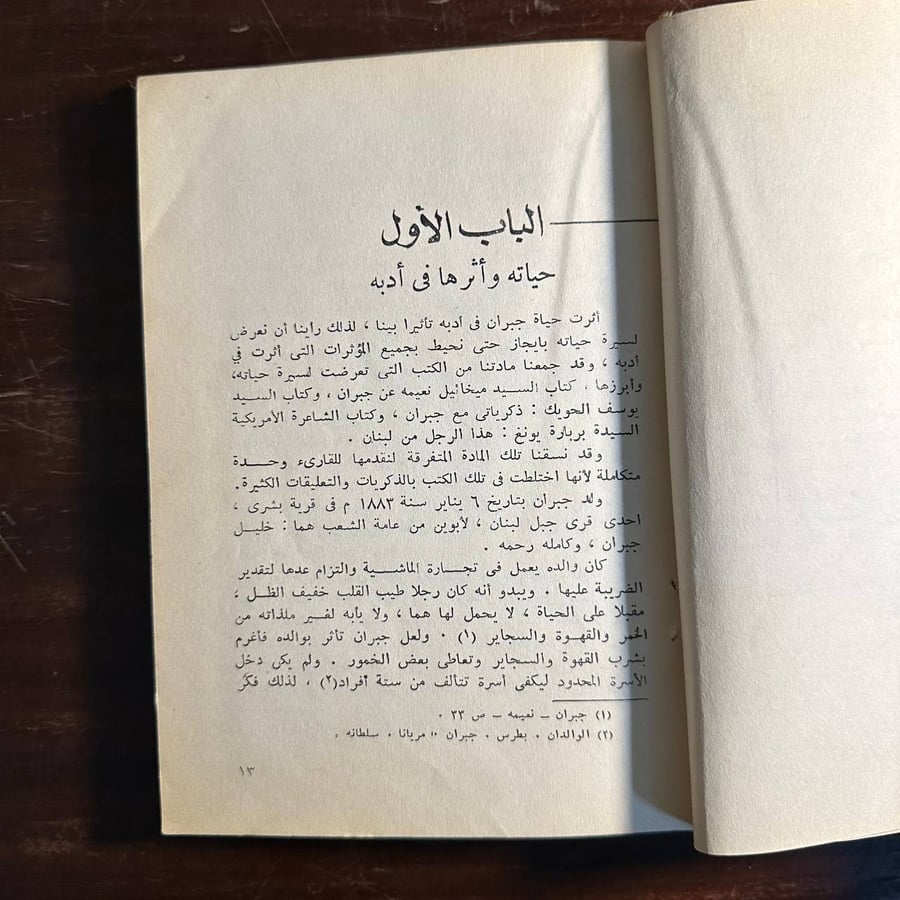 الباب الأول
حياته وأثرها فى أدبه
أثرت حياة جبران فى أدبه تأثيرا بينا ، لذلك راينا أن نعرض
لسيرة حياته بايجاز حتى نحيط بجميع المؤثرات التى أثرت في
أدبه ، وقد جمعنا مادتنا من الكتب التى تعرضت لسيرة حياته،
وأبرزها ، كتاب السيد ميخائيل نعيمه عن جبران ، وكتاب السيد
يوسف الحويك : ذكرياتى مع جبران ، وكتاب الشاعرة الأمريكية
السيدة بربارة يونغ : هذا الرجل من لبنان .
وقد نسقنا تلك المادة المتفرقة لنقدمها للقارىء وحدة
متكاملة لأنها اختلطت فى تلك الكتب بالذكريات والتعليقات الكثيرة.
ولد جبران بتاريخ ٦ يناير سنة ١٨٨٣ م فى قرية بشرى ،
احدى قرى جبل لبنان ، لأبوين من عامة الشعب هما : خليل
جبران ، وكامله رحمه .
كان والده يعمل فى تجارة الماشية والتزام عدها لتقدير
الضريبة عليها . ويبدو أنه كان رجلا طيب القلب خفيف الظل ،
مقبلا على الحياة ، لا يحمل لها هما ، ولا يأبه لغير ملذاته من
الخمر والقهوة والسجاير (١) . ولعل جبران تأثر بوالده فأغرم
بشرب القهوة والسجاير وتعاطى بعض الخمور . ولم يكن دخل
الأسرة المحدود ليكفى أسرة تتألف من ستة أفراد(٢) ، لذلك فكر
(١) جبران – نعيمه – ص ٣٣ .
(٢) الوالدان . بطرس . جبران " مريانا . سلطانه .
١٣